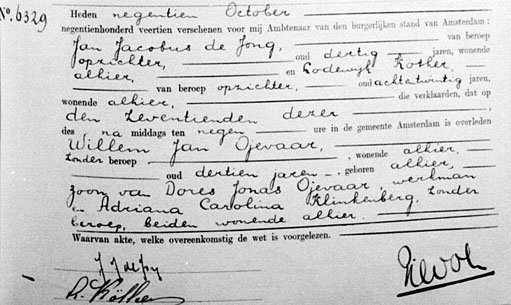 No. 6329
Heden negentien October
negentienhonderd veertien verschenen voor mij Ambtenaar van den burgerlijken stand van Amsterdam:
Jan Jacobus de Jong, van beroep
oprichter, oud dertig jaren, wonende
alhier, en Lodewijk Kother,
van beroep oprichter, oud achtentwintig jaren,
wonende alhier, die verklaarden, dat op
den zeventienden dezer
des na middags ten negen ure in de gemeente Amsterdam is overleden
Willem Jan Ojevaar,
zonder beroep, wonende alhier,
oud dertien jaren, geboren alhier,
zoon van Dores Jonas Ojevaar, werkman
en Adriana Carolina Klinkenberg, zonder
beroep, beiden wonende alhier.
Waarvan akte, welke overeenkomstig de wet is voorgelezen.
J J de Jong